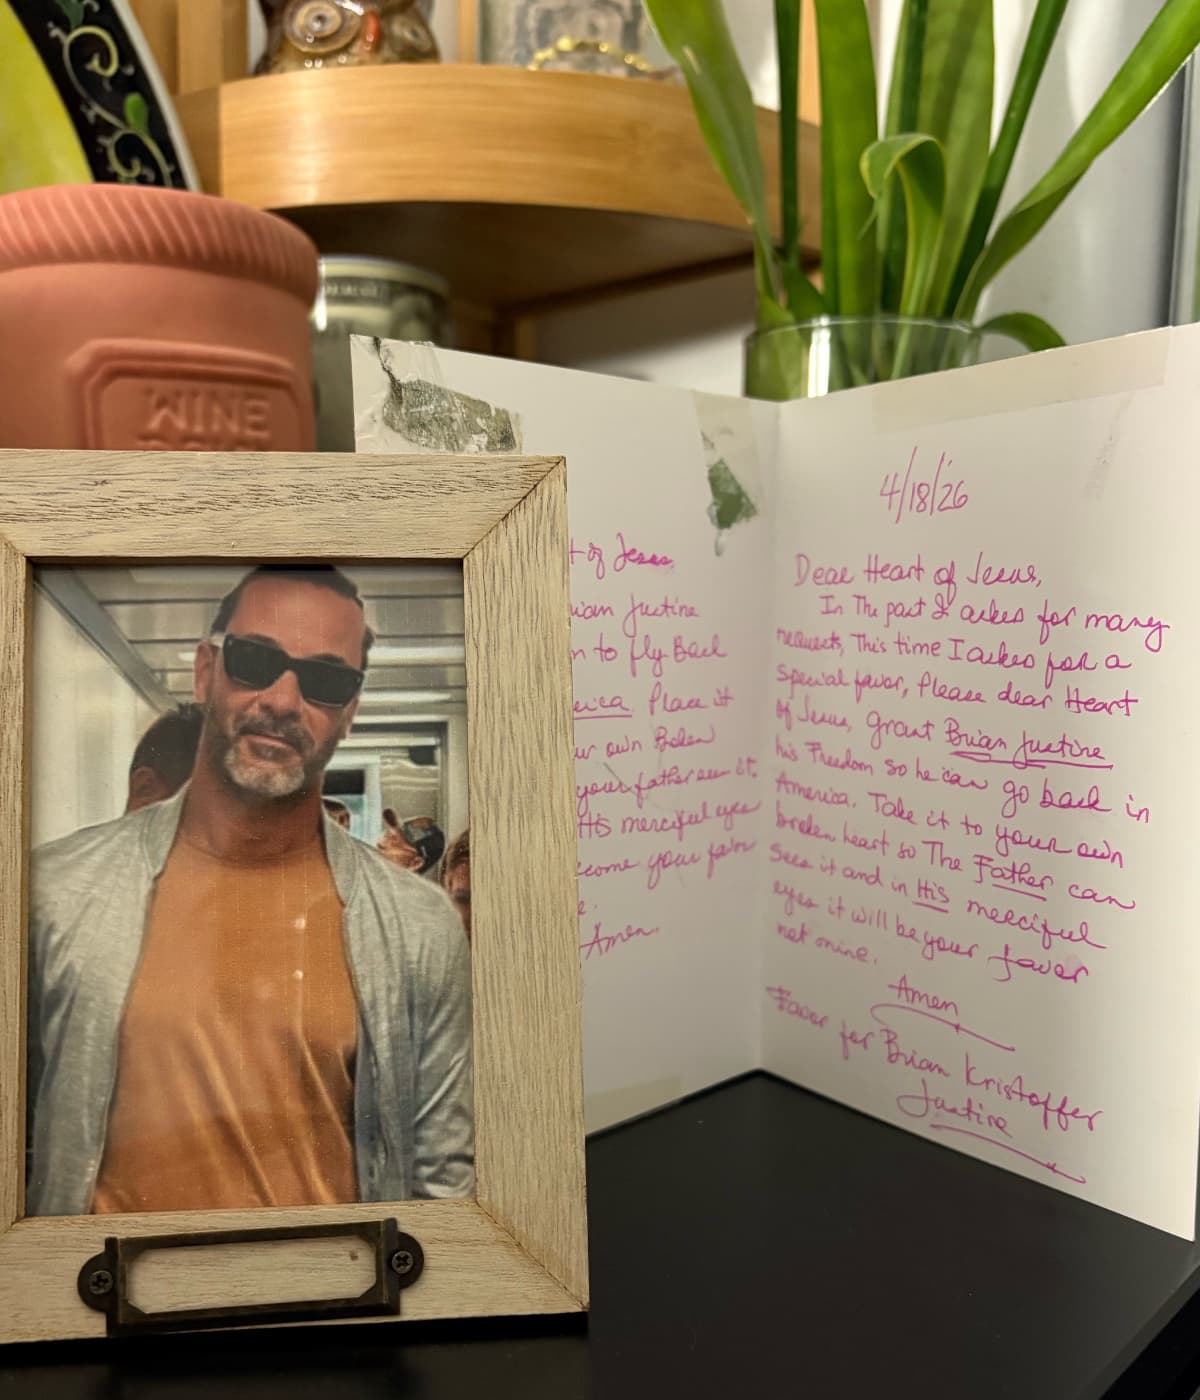 WINE
of Jesus,
Justine
to fly Back
Place it
own
your father see it,
His merciful eyes
your favor
Amen.
4/18/26
Dear Heart of Jesus,
In The past I askes for many
requests, This time I askes for a
Special favor, Please dear Heart
of Jesus, grant Brian Justine
his Freedom so he can go back in
America. Take it to your own
broken heart so The Father can
sees it and in His merciful
eyes it will be your favor
not mine.
Amen
Favor for Brian Kristoffer
Justine